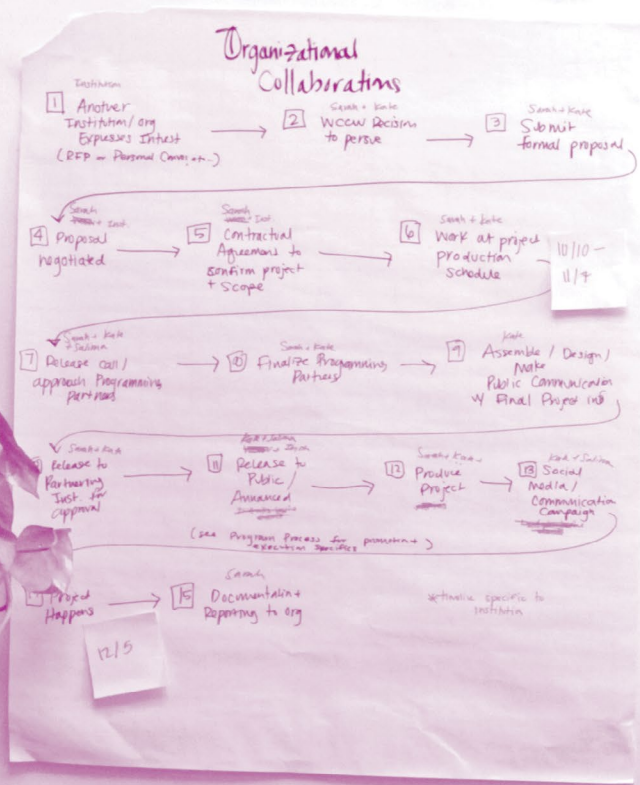 Organizational
Collaborations
Institution
1 Another
Institution/org
Expresses Intrest
(RFP or Personal
Sarah + Kate
2 WCCW Decision
to persue
Sarah + Kate
3 Submit
formal proposal
Sarah
+ Inst.
4 Proposal
negotiated
Sarah
+ Inst
5 Contractual
Agreement to
confirm project
+ Scope
Sarah + Kate
6 Work at project
production
schedule
10/10 -
Sarah + Kate
+ Salima
7 Release call/
approach Programming
Partners
Sarah + Kate
Finalize Programming
Partners
Kate
9 Assemble / Design /
Make
Public Communication
w/ Final Project info
Sarah + Kate
Release to
Partnering
Inst. for
approval
11 Release to
Public /
Announced
Sarah + Kate
12 Produce
Project
Kate + Salima
13 Social
Media /
Communication
Campaign
(see Program Process for promotion +
execution specifics)
Project
Happens
Sarah
15 Documentation +
Reporting to org
12/5
specific to
institution